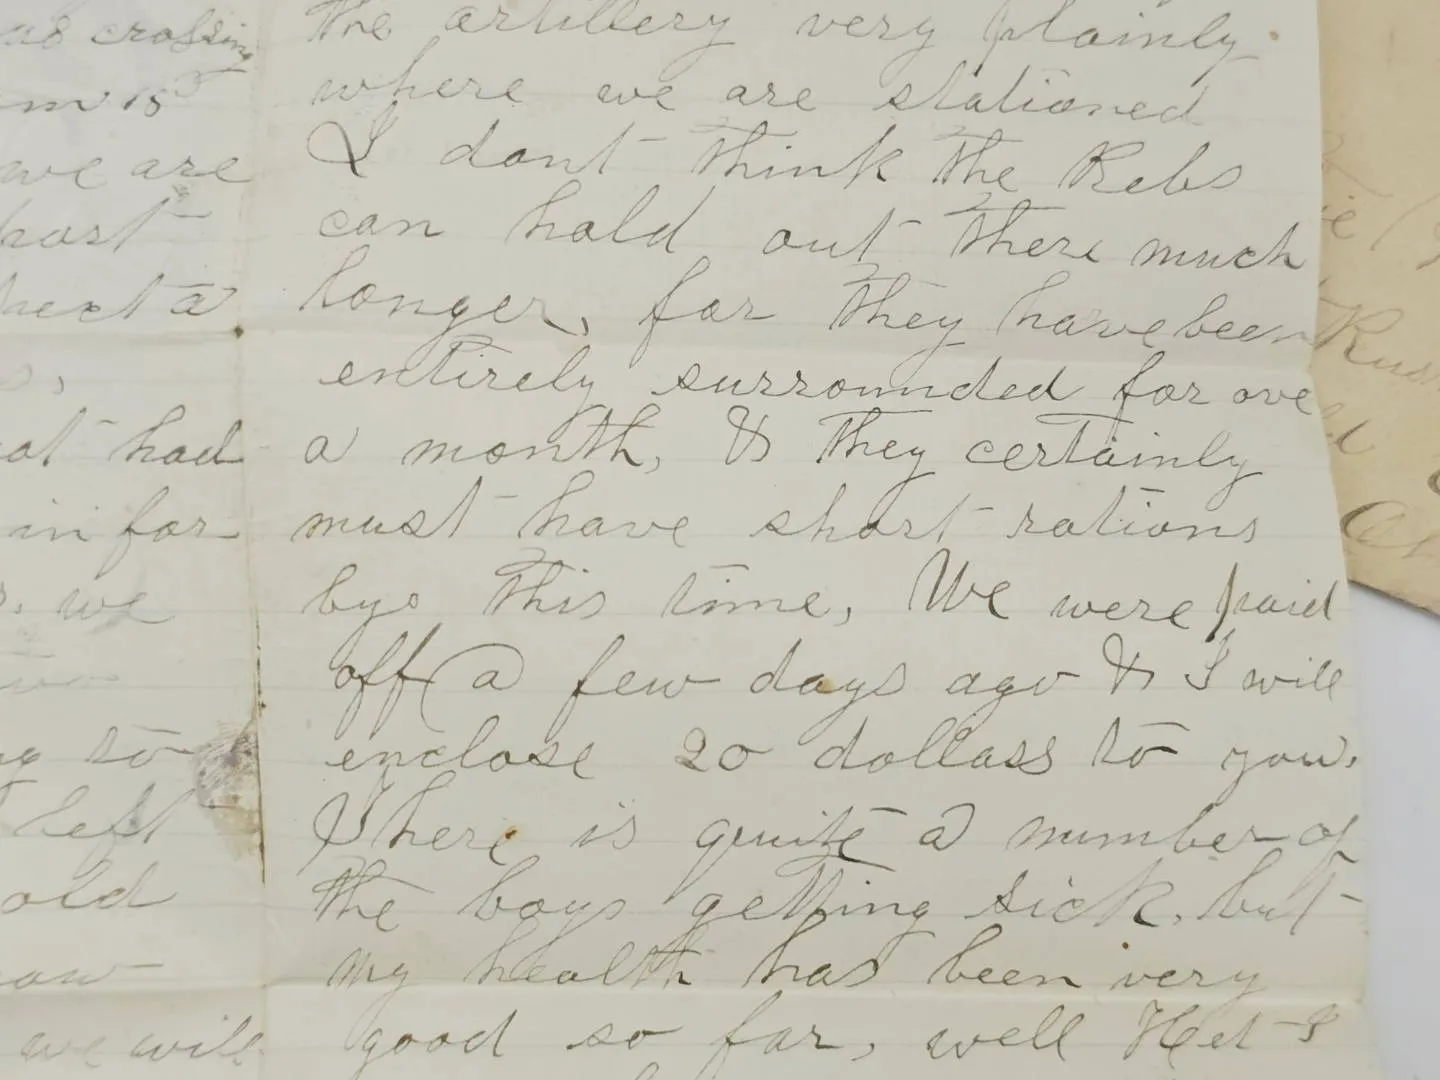 crossing
15
we are
had
in for
we
to
left
old
we will
the artillery very plainly
where we are stationed
I dont think the Rebs
can hold out there much
longer, for they have been
entirely surrounded for ove
a month, & they certainly
must have short rations
bye this time, We were paid
off a few days ago & I will
enclose 20 dollass to you.
There is quite a number of
the boys getting sick, but
my health has been very
good so far, well Het I